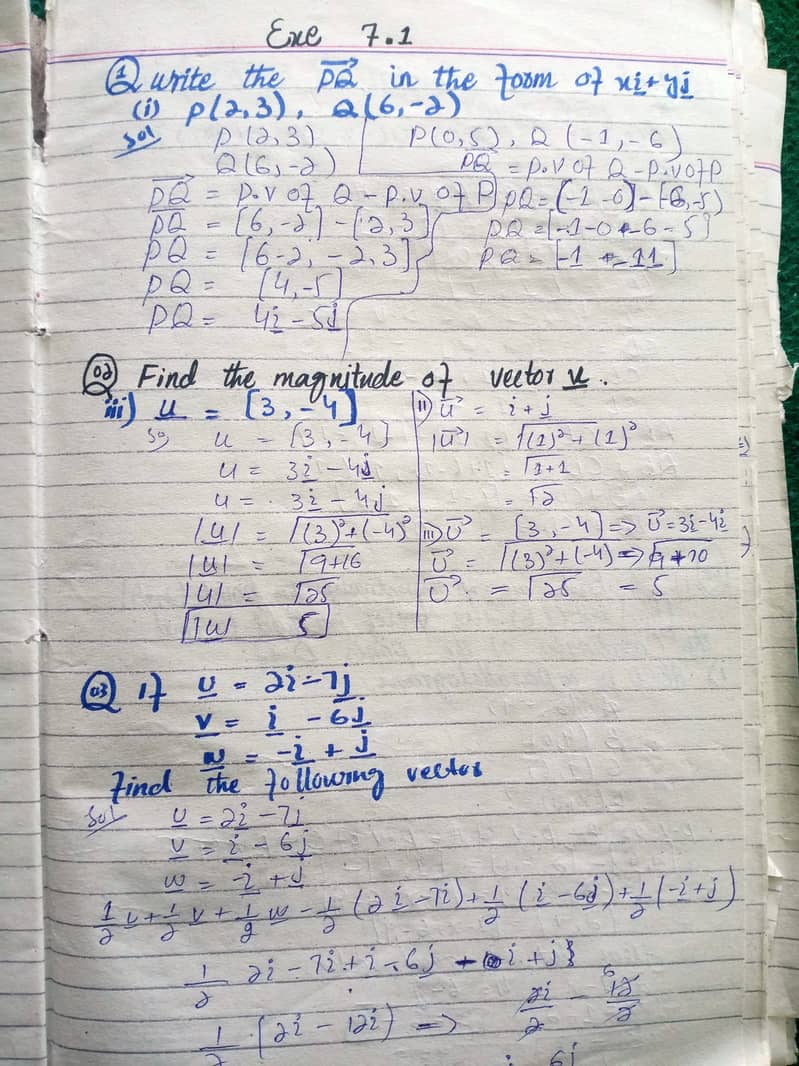 Exe 7.1
Q1 write the PQ in the form of xi+yj
(i) P(2,3), Q(6,-2)
Sol P(2,3)
Q(6,-2)
PQ = P.V of Q - P.V of P
PQ = [6,-2] - [2,3]
PQ = [6-2, -2,3]
PQ = [4,-5]
PQ = 4i - 5j
P(0,5), Q(-1,-6)
PQ = P.V of Q - P.V of P
PQ = [-1-0, -6-5]
PQ = [-1, -11]
Q02 Find the magnitude of vector u.
iii) u = [3,-4]
So u = [3,-4]
u = 3i - 4j
u = 3i - 4j
|u| = √(3)²+(-4)²
|u| = √9+16
|u| = √25
|u| 5
ii) u = i + j
|u| = √(1)²+(1)²
= √1+1
= √2
iii) U = [3,-4] => U = 3i-4i
U = √(3)²+(-4) =>
U = √25 = 5
Q03 if u = 2i-7j
v = i - 6j
w = -i + j
Find the following vector
Sol u = 2i - 7j
v = i - 6j
w = -i + j
1/2 u + 1/2 v + 1/2 w = 1/2 (2i - 7i) + 1/2 (i - 6j) + 1/2 (-i + j)
1/2 2i - 7i + i - 6j + i + j}
1/2 (2i - 12i) => 2i/2 - 12/2 6
i 6j